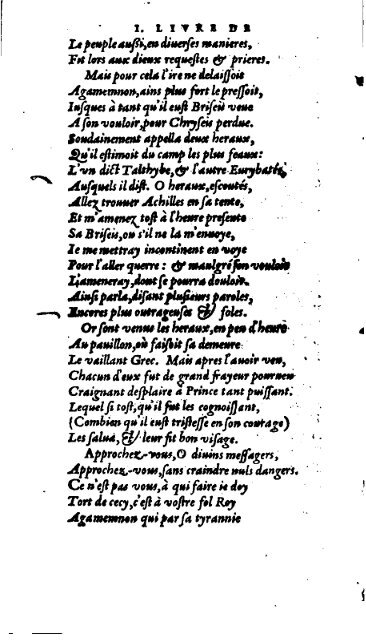 I. LIVRE DE
Le peuple auſsi, en diuerſes manieres,
Fit lors aux dieux requeſtes & prieres.
Mais pour cela l'ire ne delaiſſoit
Agamemnon, ains plus fort le preſſoit,
Iuſques à tant qu'il euſt Briſeis veue
A ſon vouloir, pour Chryſeis perdue.
Soudainement appella deux heraux,
Qu'il eſtimoit du camp les plus feaux:
L'vn dict Talthybe, & l'autre Eurybates,
Auſquels il diſt. O heraux, eſcoutés,
Allez trouuer Achilles en ſa tente,
Et m'amenez toſt à l'heure preſente
Sa Briſeis, ou s'il ne la m'enuoye,
Ie me mettray incontinent en voye
Pour l'aller querre: & maulgré ſon vouloir
L'ameneray, dont ſe pourra douloir.
Ainſi parla, diſant pluſieurs paroles,
Encores plus outrageuſes & foles.
Or ſont venus les heraux, en peu d'heure
Au pauillon, où faiſoit ſa demeure
Le vaillant Grec. Mais apres l'auoir veu,
Chacun d'eux fut de grand frayeur pourueu
Craignant deſplaire à Prince tant puiſſant.
Lequel ſi toſt, qu'il fut les cognoiſſant,
(Combien qu'il euſt triſteſſe en ſon courage)
Les ſalua, & leur fit bon viſage.
Approchez-vous, O diuins meſſagers,
Approchez-vous, ſans craindre nuls dangers.
Ce n'eſt pas vous, à qui faire ie doy
Tort de cecy, c'eſt à voſtre fol Roy
Agamemnon qui par ſa tyrannie